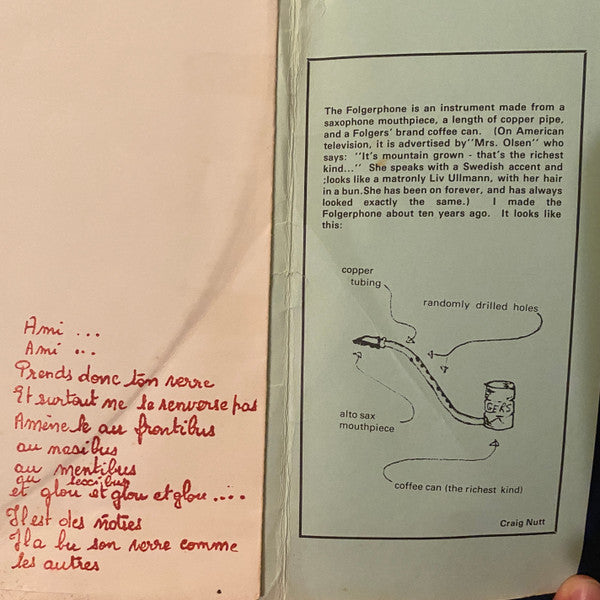 Ami ...
Ami ...
Prends donc ton verre
Et surtout ne le renverse pas
Amène le au frontibus
au nasibus
au mentibus
au sexibus
et glou et glou et glou ....
Il est des nôtres
Il a bu son verre comme
les autres
The Folgerphone is an instrument made from a
saxophone mouthpiece, a length of copper pipe,
and a Folgers' brand coffee can. (On American
television, it is advertised by"Mrs. Olsen" who
says: "It's mountain grown - that's the richest
kind..." She speaks with a Swedish accent and
;looks like a matronly Liv Ullmann, with her hair
in a bun.She has been on forever, and has always
looked exactly the same.) I made the
Folgerphone about ten years ago. It looks like
this:
copper
tubing
randomly drilled holes
alto sax
mouthpiece
GERS
coffee can (the richest kind)
Craig Nutt